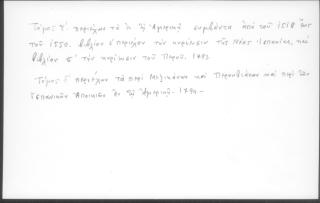 Τόμος γ′ περιέχων τὰ ἐν τῇ Ἀμερικῇ συμβάντα ἀπὸ τοῦ 1518 ἕως
τοῦ 1550. βιβλίον ε′ περιέχον τὴν κυρίευσιν τῆς Νέας Ἱσπανίας, καὶ
βιβλίον ς′ τὴν κυρίευσιν τοῦ Περοῦ. 1793
Τόμος δ′ περιέχων τὰ περὶ Μεξικάνων καὶ Περουβιάνων καὶ περὶ τῶν
ἱσπανικῶν Ἀποικιῶν ἐν τῇ Ἀμερικῇ. 1794 -